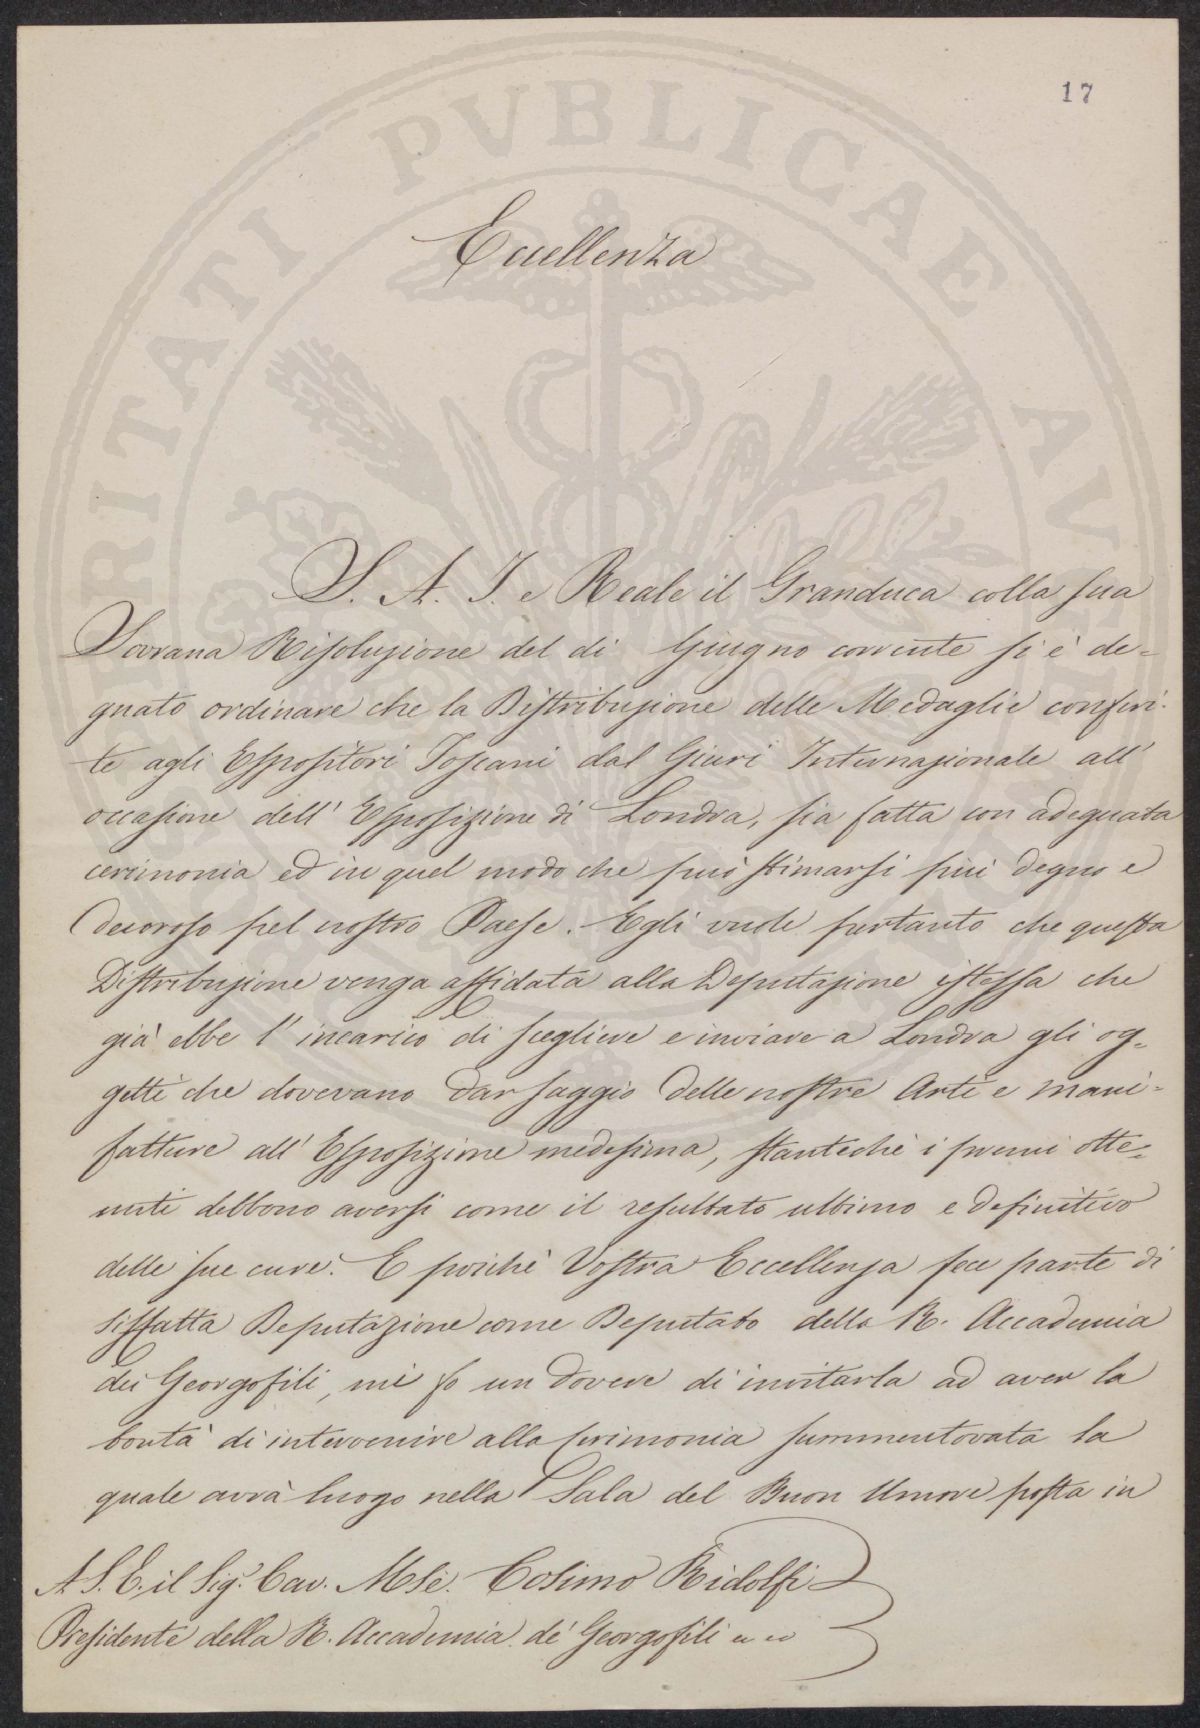 17
PROSPERITATI PVBLICAE AVGENDAE
Eccellenza
S. A. I. e Reale il Granduca colla sua
Sovrana Risoluzione del di Giugno corrente si è de=
gnato ordinare che la Distribuzione delle Medaglie conferi-
te agli Espositori Toscani dal Giurì Internazionale all'
occasione dell' Esposizione di Londra, sia fatta con adeguata
cerimonia ed in quel modo che può stimarsi più degno e
decoroso pel nostro Paese. Egli vuole pertanto che questa
Distribuzione venga affidata alla Deputazione istessa che
già ebbe l' incarico di scegliere e inviare a Londra gli og=
getti che dovevano dar saggio delle nostre Arti e mani=
fatture all' Esposizione medesima, stantechè i premi otte=
nuti debbono aversi come il resultato ultimo e definitivo
delle sue cure. E poichè Vostra Eccellenza fece parte di
siffatta Deputazione come Deputato della R. Accademia
dei Georgofili, mi fo un dovere di invitarla ad aver la
bontà di intervenire alla cerimonia summentovata la
quale avrà luogo nella Sala del Buon Umore posta in
A S. E. il Sig.r Cav. Mse. Cosimo Ridolfi
Presidente della R. Accademia de' Georgofili